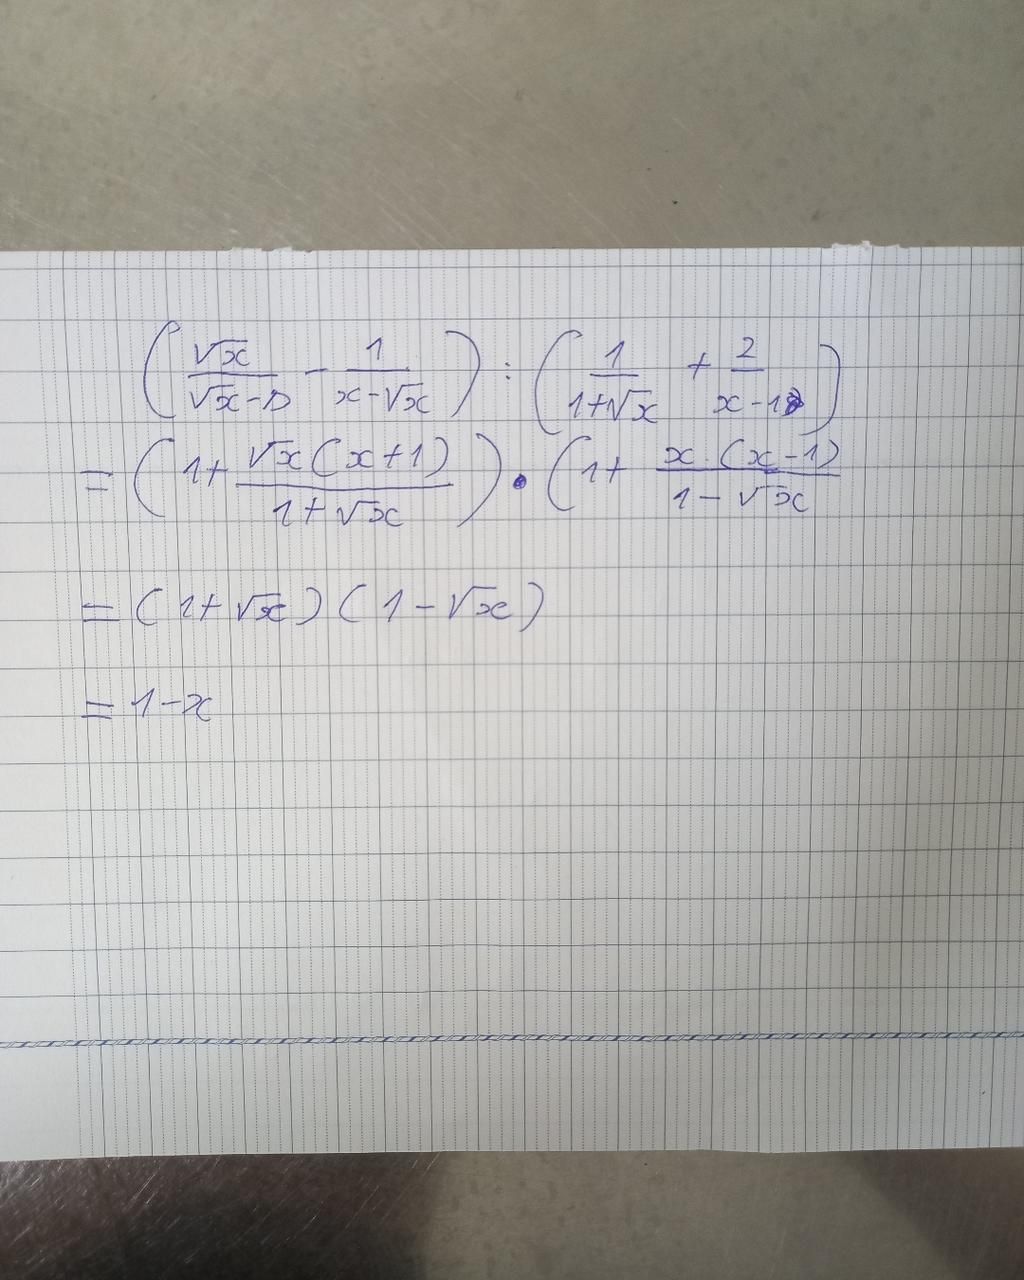 (√x/(√x-1) - 1/(x-√x)) : (1/(1+√x) + 2/(x-1))
= (1 + √x(x+1)/(1+√x)) • (1 + x.(x-1)/(1-√x)
= (1+√x)(1-√x)
= 1-x